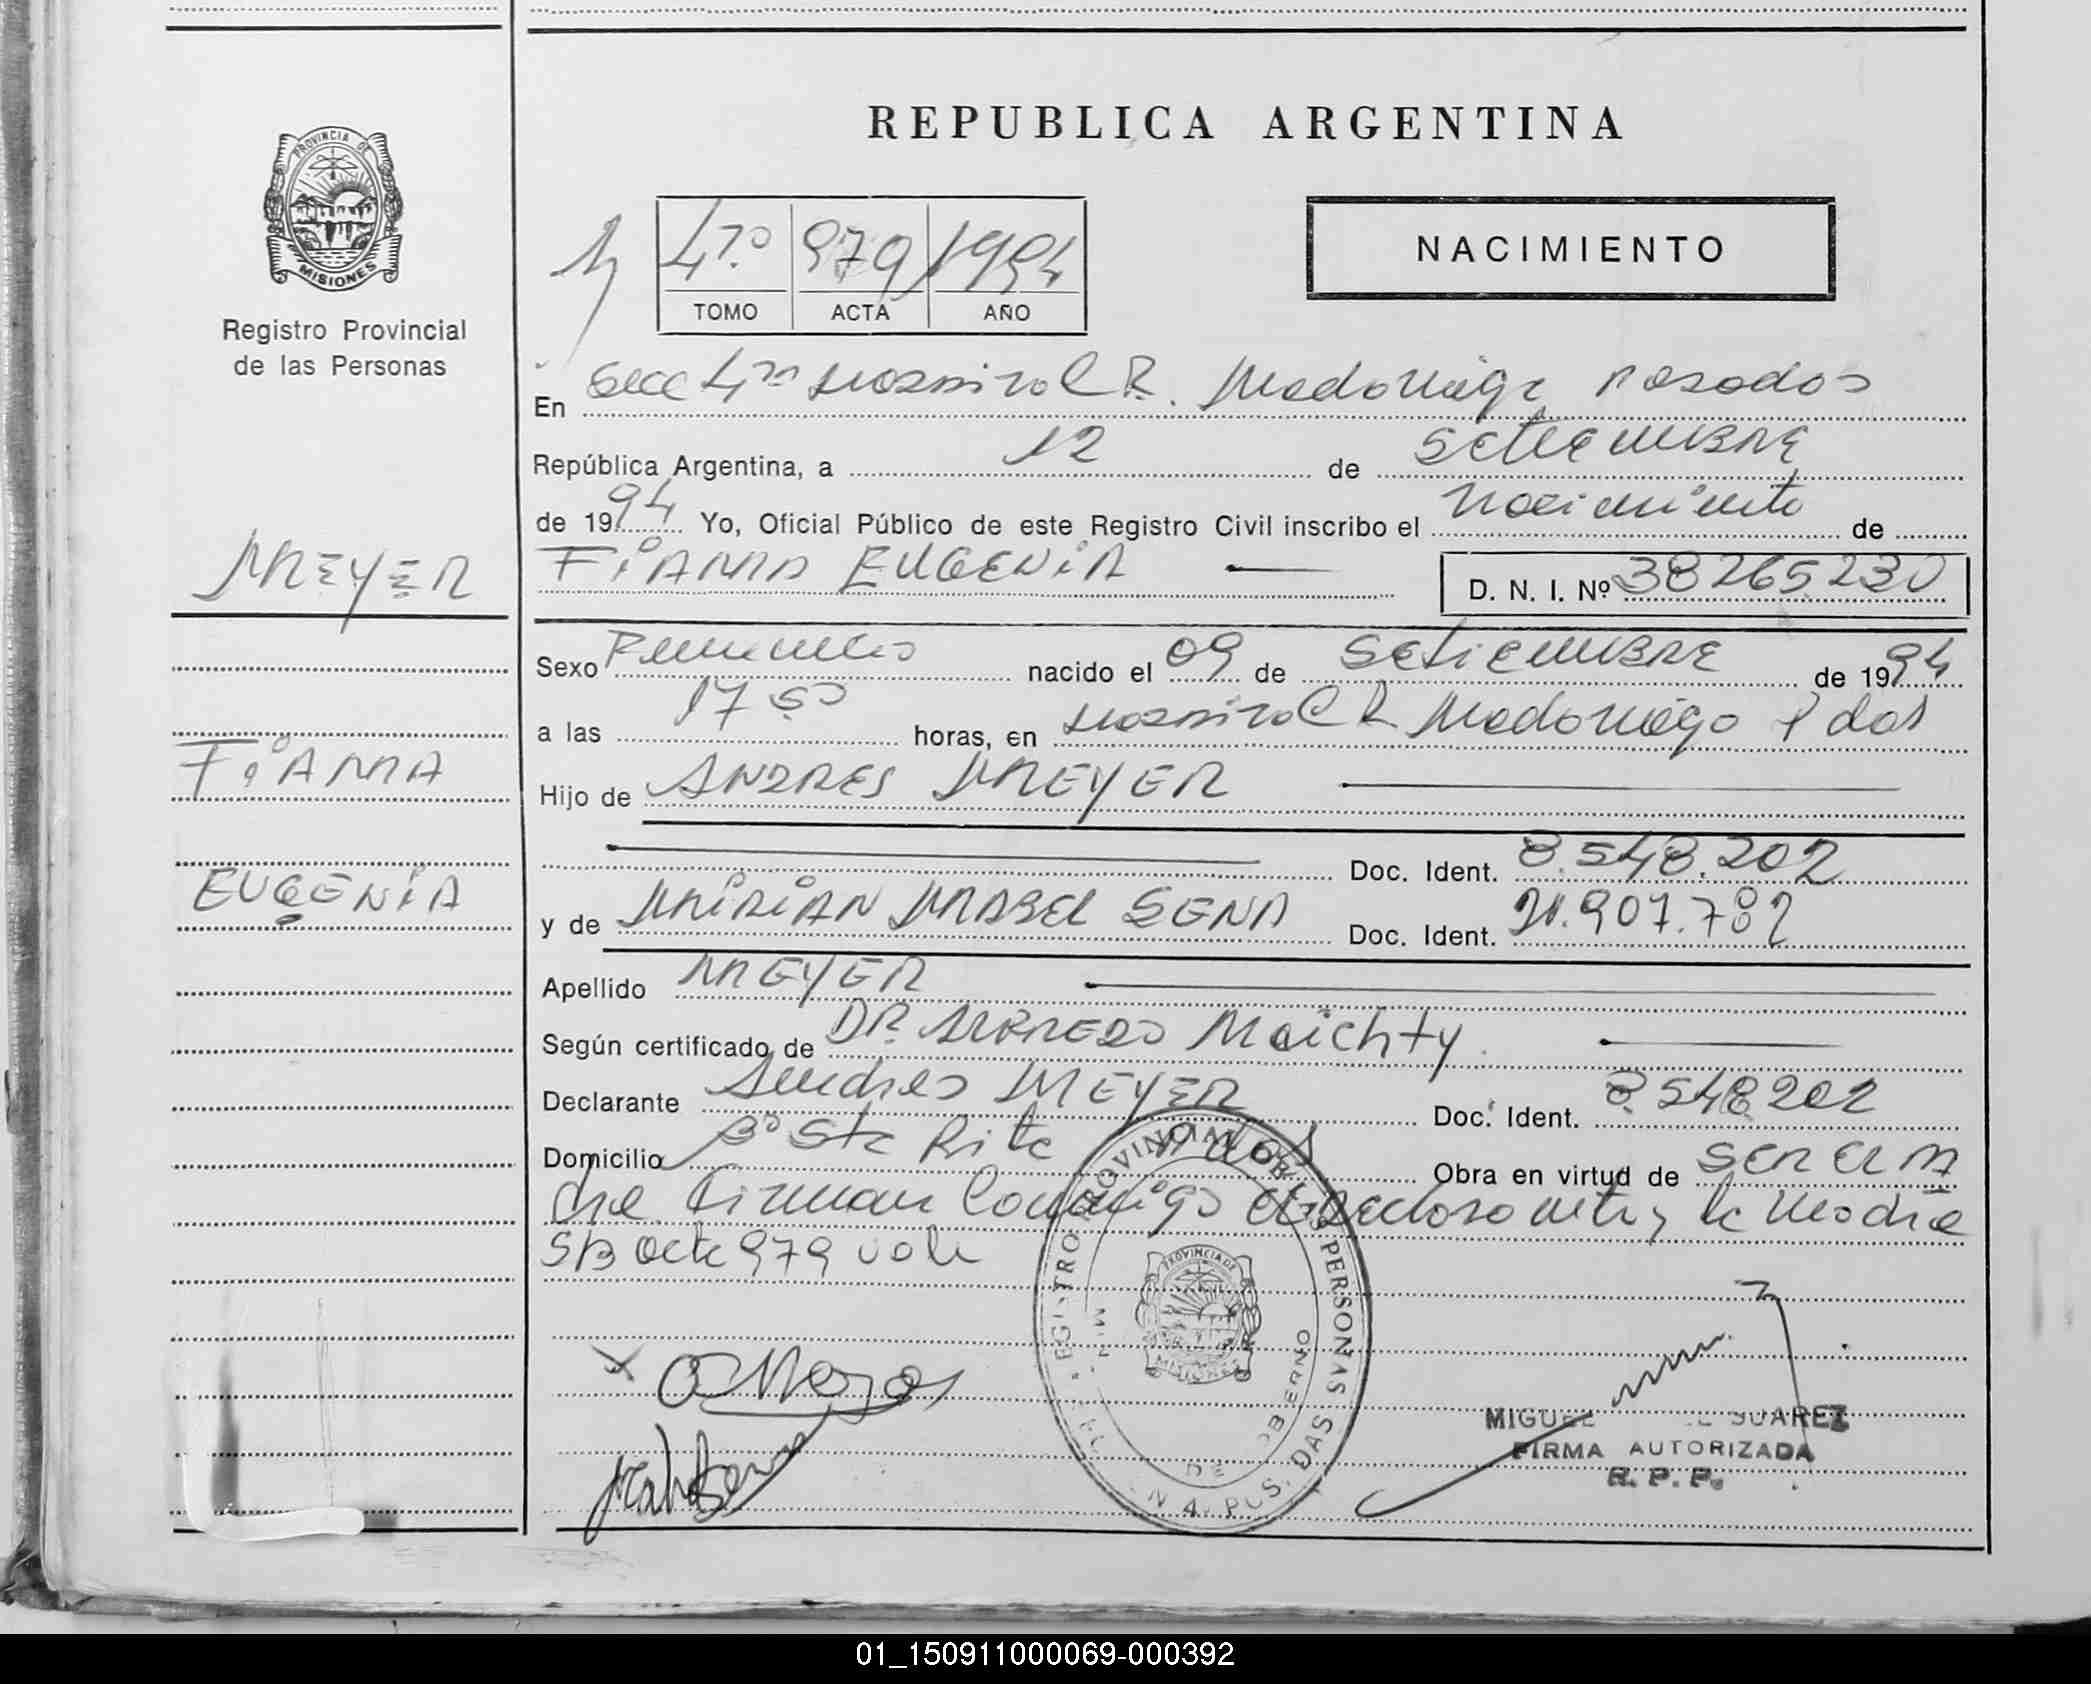 REPUBLICA ARGENTINA
PROVINCIA DE
MISIONES
Registro Provincial
de las Personas
4º 979 1994
TOMO ACTA AÑO
NACIMIENTO
En Secc 4ª Hospital R. Madariaga Posadas
República Argentina, a 12 de Setiembre
de 1994 Yo, Oficial Público de este Registro Civil inscribo el Nacimiento de
FiAMA EUGENiA D. N. I. Nº 38265230
MEYER
FiAMA
EUGENiA
Sexo Femenino nacido el 09 de Setiembre de 1994
a las 17 50 horas, en Hospital R Madariaga Pdas
Hijo de ANDRES MEYER
Doc. Ident. 8.548.202
y de MiRiAN MABEL SENA Doc. Ident. 21.907.782
Apellido MEYER
Según certificado de DR. ALFREDO Maichty.
Declarante Andres MEYER Doc. Ident. 8.548202
Domicilio Bº Sta Rita Pdas Obra en virtud de SER EL PA
dre Firman Conmigo el declarante y la Madre
S/B acta 979 vale
REGISTRO PROVINCIAL DE LAS PERSONAS
PROVINCIA DE
MISIONES
DE GOBIERNO
4. PCS. DAS
MIGUEL SUAREZ
FIRMA AUTORIZADA
R. P. P.
01_150911000069-000392